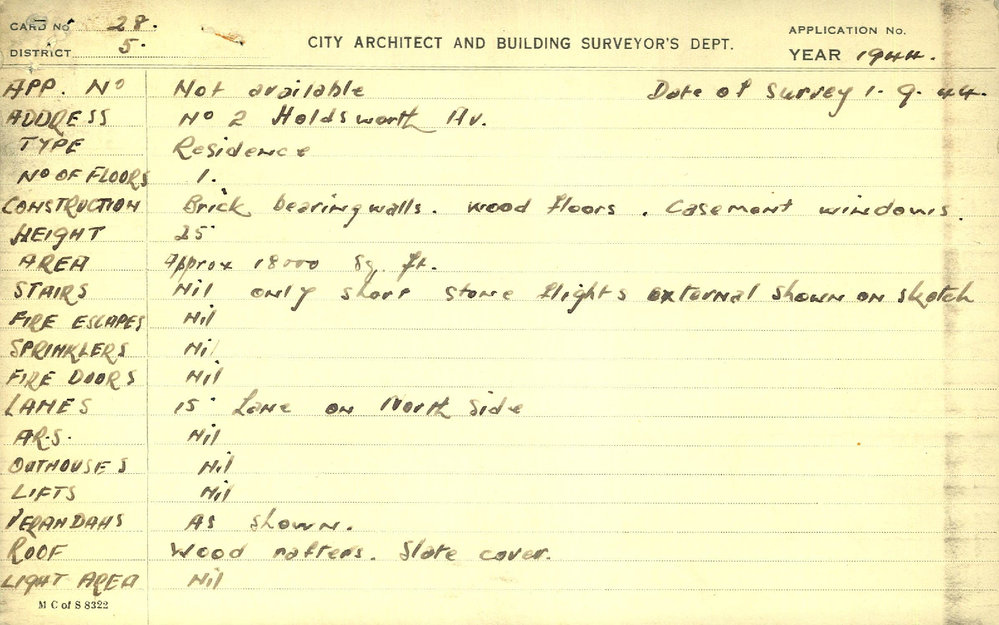 CARD No 28.
DISTRICT 5.
CITY ARCHITECT AND BUILDING SURVEYOR'S DEPT.
APPLICATION No.
YEAR 1944.
APP. No Not available Date of Survey 1. 9. 44.
ADDRESS No 2 Holdsworth Av.
TYPE Residence
No OF FLOORS 1.
CONSTRUCTION Brick bearing walls. wood floors. Casement windows.
HEIGHT 25'
AREA Approx 18000 Sq. ft.
STAIRS Nil only short stone flights external shown on sketch
FIRE ESCAPES Nil
SPRINKLERS Nil
FIRE DOORS Nil
LANES 15' Lane on North Side
A.R.S. Nil
OUTHOUSES Nil
LIFTS Nil
VERANDAHS As shown.
ROOF Wood rafters. Slate cover.
LIGHT AREA Nil
M C of S 8322